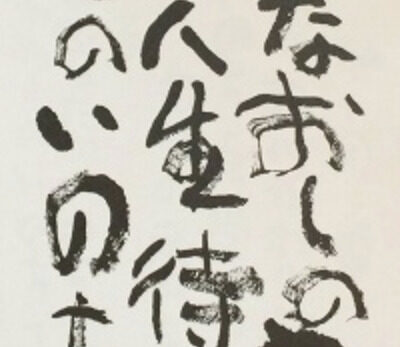 なおしの
人生待
のいのち